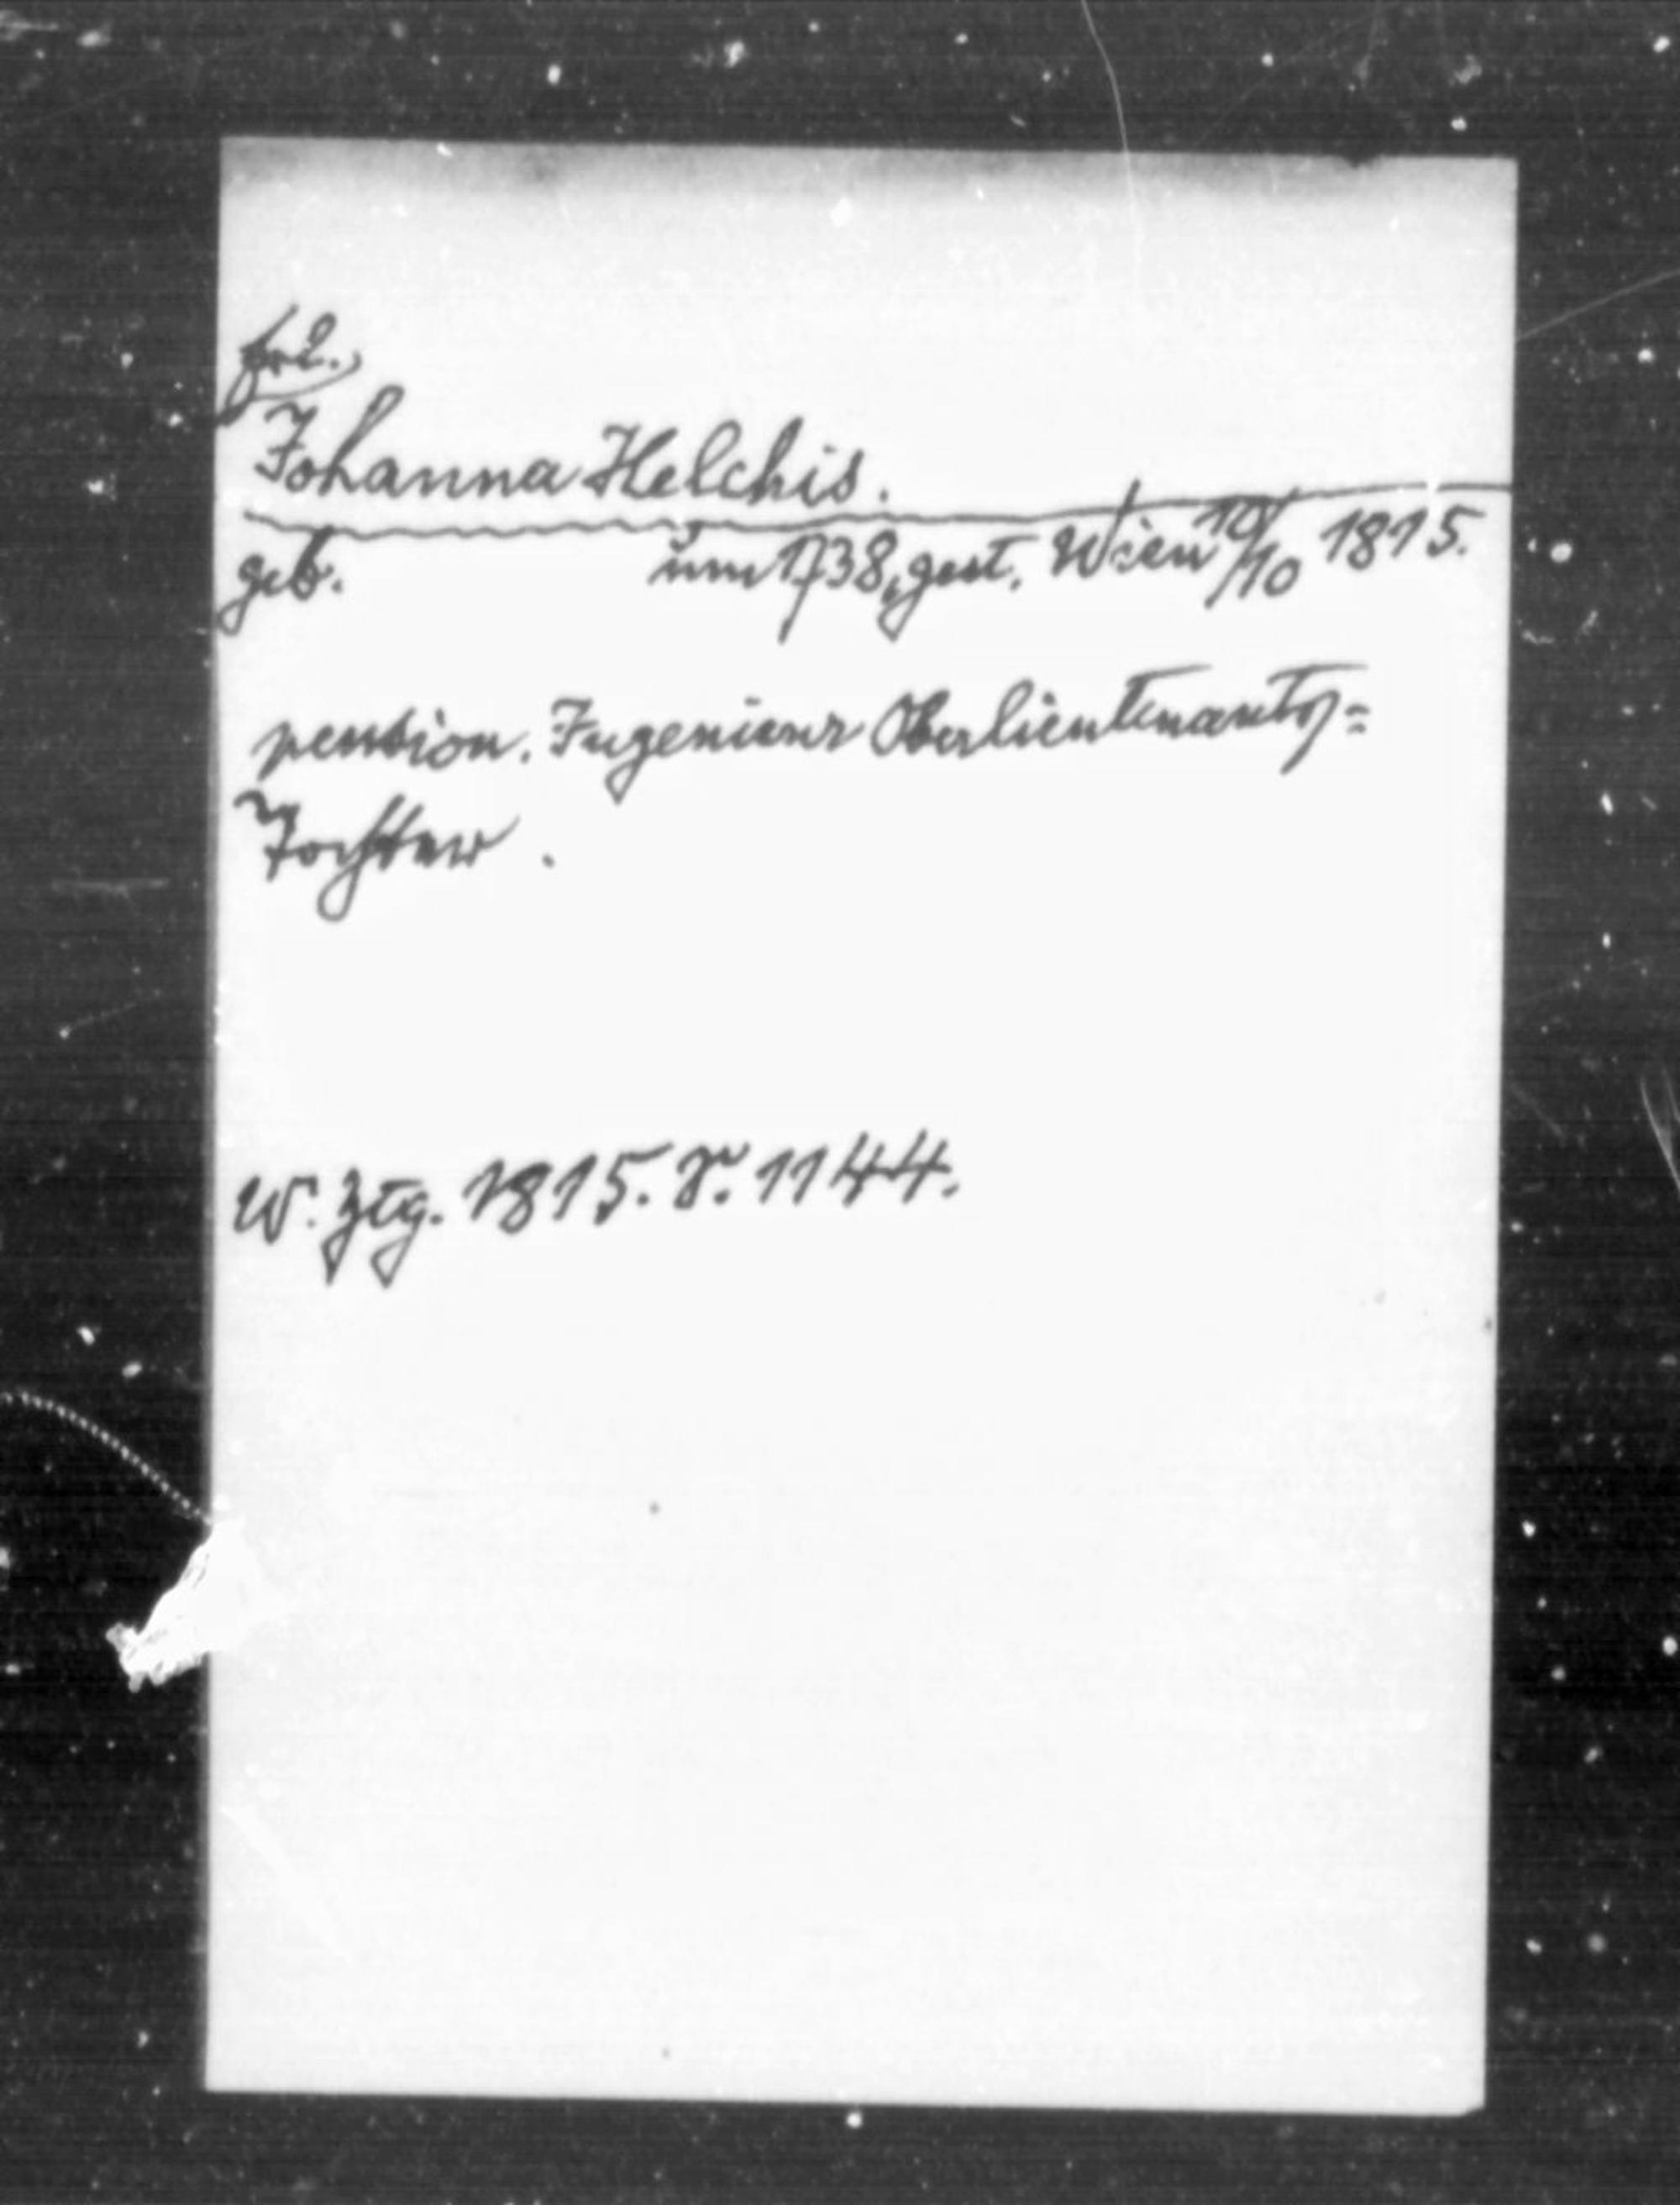 Frl.
Johanna Helchis.
geb. um 1738, gest. Wien 10/10 1815.
pension. Ingenieur Oberlieutenants=
Tochter.
W. Ztg. 1815. S. 1144.